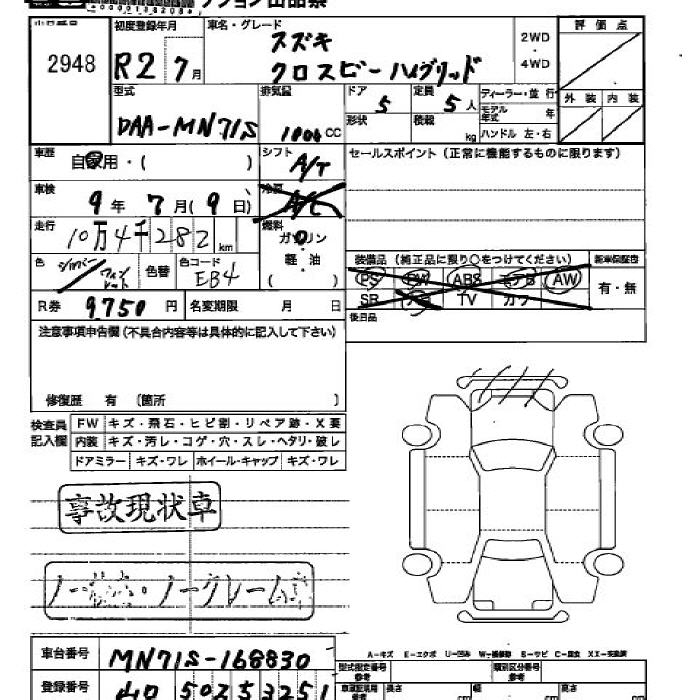 初度登録年月 車名・グレード 評価点
2948 R2 7月 スズキ 2WD
クロスビー ハイブリッド 4WD
型式 排気量 ドア 定員 ディーラー・並行 外装 内装
DAA-MN71S 1000cc 5 5人 モデル年式 年
形状 積載 kg ハンドル 左・右
車歴 自家用・( ) シフト A/T セールスポイント(正常に機能するものに限ります)
車検 9年 7月(9日) 冷房 A/C
走行 10万4千282km 燃料 ガソリン
軽・油
( )
色 シルバー 色替 色コード EB4 装備品(純正品に限り○をつけてください) 新車保証書
PS PW ABS エアB AW 有・無
SR ナビ TV カワ
R券 9,750円 名変期限 月 日
後日品
注意事項申告欄(不具合内容等は具体的に記入して下さい)
修復歴 有 〔箇所 〕
検査員記入欄 FW キズ・飛石・ヒビ割・リペア跡・X要
内装 キズ・汚レ・コゲ・穴・スレ・ヘタリ・破レ
ドアミラー キズ・ワレ ホイール・キャップ キズ・ワレ
事故現状車
ノー ・ノークレーム
A-キズ E-エクボ U-凹み W-補修跡 S-サビ C-腐食 XX-交換済
車台番号 MN71S-168830
型式指定番号 類別区分番号
登録番号 502 5 3251
長さ cm 幅 cm 高さ cm